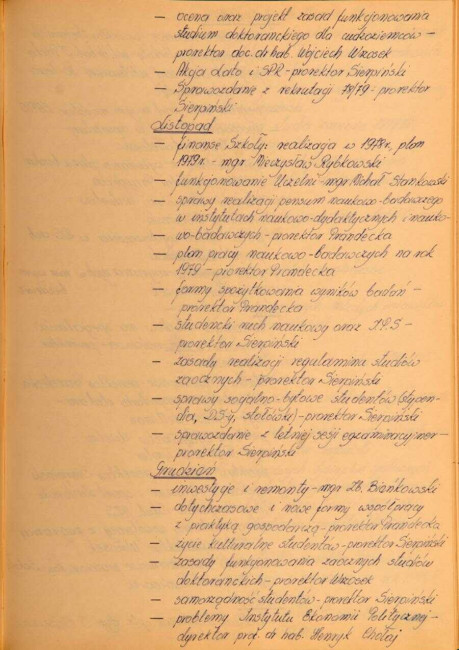 — ocena oraz projekt zasad funkcjonowania
studium doktoranckiego dla cudzoziemców –
prorektor doc. dr hab. Wojciech Wrzosek
— Akcja Lato i SPR – prorektor Sierpiński
— Sprawozdanie z rekrutacji 78/79 – prorektor
Sierpiński
Listopad
— finanse Szkoły: realizacja w 1978 r., plan
1979 r. – mgr Mieczysław Rybkowski
— funkcjonowanie Uczelni – mgr Michał Stankowski
— sprawy realizacji pensum naukowo-badawczego
w instytutach naukowo-dydaktycznych i nauko-
— wo-badawczych – prorektor Prandecka
— plan pracy naukowo-badawczych na rok
1979 – prorektor Prandecka
— formy spożytkowania wyników badań –
prorektor Prandecka
— studencki ruch naukowy oraz
prorektor Sierpiński
— zasady realizacji regulaminu studiów
zaocznych – prorektor Sierpiński
— sprawy socjalno-bytowe studentów (stypen-
dia, DS-y, stołówki) – prorektor Sierpiński
— sprawozdanie z letniej sesji egzaminacyjnej –
prorektor Sierpiński
Grudzień
— inwestycje i remonty – mgr Zb. Bieńkowski
— dotychczasowe i nowe formy współpracy
z praktyką gospodarczą – prorektor Prandecka
— życie kulturalne studentów – prorektor Sierpiński
— zasady funkcjonowania zaocznych studiów
doktoranckich – prorektor Wrzosek
— samorządność studentów – prorektor Sierpiński
— problemy Instytutu Ekonomii Politycznej –
dyrektor prof. dr hab. Henryk Chołaj